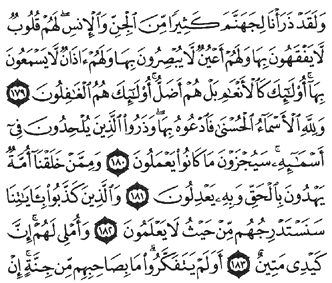 وَلَقَدْ ذَرَأْنَا لِجَهَنَّمَ كَثِيرًا مِّنَ ٱلْجِنِّ وَٱلْإِنسِ ۖ لَهُمْ قُلُوبٌ
لَّا يَفْقَهُونَ بِهَا وَلَهُمْ أَعْيُنٌ لَّا يُبْصِرُونَ بِهَا وَلَهُمْ ءَاذَانٌ لَّا يَسْمَعُونَ
بِهَآ ۚ أُو۟لَـٰٓئِكَ كَٱلْأَنْعَـٰمِ بَلْ هُمْ أَضَلُّ ۚ أُو۟لَـٰٓئِكَ هُمُ ٱلْغَـٰفِلُونَ ١٧٩
وَلِلَّهِ ٱلْأَسْمَآءُ ٱلْحُسْنَىٰ فَٱدْعُوهُ بِهَا ۖ وَذَرُوا۟ ٱلَّذِينَ يُلْحِدُونَ فِىٓ
أَسْمَـٰٓئِهِۦ ۚ سَيُجْزَوْنَ مَا كَانُوا۟ يَعْمَلُونَ ١٨٠ وَمِمَّنْ خَلَقْنَآ أُمَّةٌ
يَهْدُونَ بِٱلْحَقِّ وَبِهِۦ يَعْدِلُونَ ١٨١ وَٱلَّذِينَ كَذَّبُوا۟ بِـَٔايَـٰتِنَا
سَنَسْتَدْرِجُهُم مِّنْ حَيْثُ لَا يَعْلَمُونَ ١٨٢ وَأُمْلِى لَهُمْ ۚ إِنَّ
كَيْدِى مَتِينٌ ١٨٣ أَوَلَمْ يَتَفَكَّرُوا۟ ۗ مَا بِصَاحِبِهِم مِّن جِنَّةٍ ۚ إِنْ